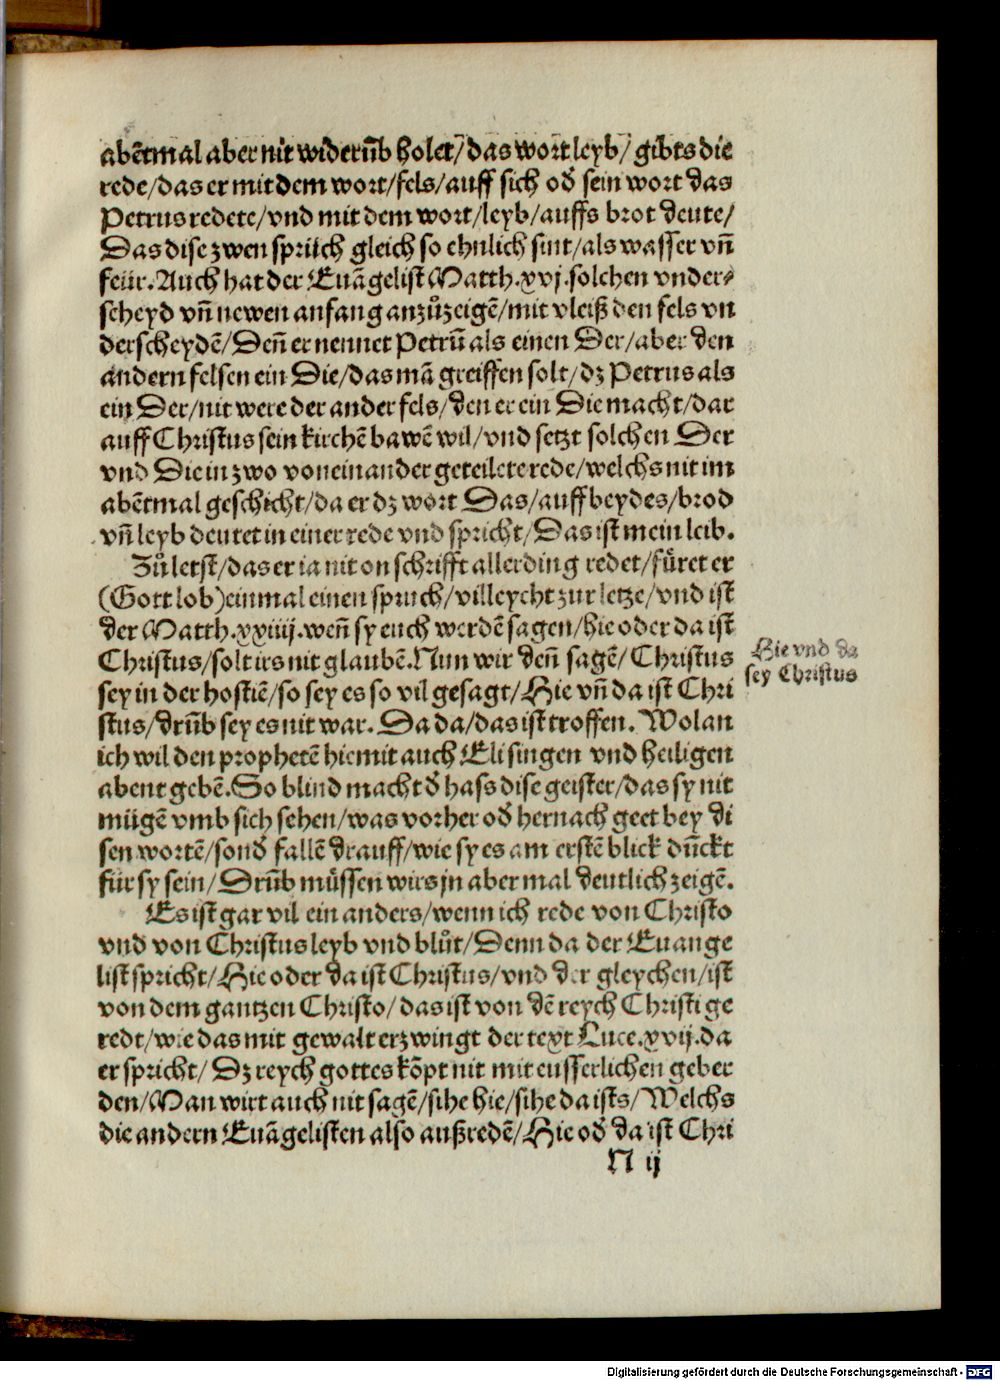 abẽtmal aber nit widerũb holet/ das wort leyb/ gibts die
rede/das er mit dem wort/fels/auff sich oď sein wort das
Petrus redete/vnd mit dem wort/leyb/auffs brot deute/
Das dise zwen sprüch gleich so ehnlich sint/als wasser vñ
feür. Auch hat der Euãgelist Matth.xvj.solchen vnder⸗
scheyd vñ newen anfang anzůzeigẽ/mit vleiß den fels vn
derscheydẽ/Deñ er nennet Petrũ als einen Der/aber den
andern felsen ein Die/das mã greiffen solt/dz Petrus als
ein Der/nit were der ander fels/den er ein Die macht/dar
auff Christus sein kirchẽ bawẽ wil/vnd setzt solchen Der
vnd Die in zwo voneinander geteilete rede/welchs nit im
abẽtmal geschicht/da er dz wort Das/auff beydes/brod
vñ leyb deutet in einer rede vnd spricht/Das ist mein leib.
Zů letst/das er ia nit on schrifft allerding redet/fůret er
(Gott lob)einmal einen spruch/villeycht zur letze/vnd ist
der Matth.xxiiij.weñ sy euch werdẽ sagen/hie oder da ist
Christus/solt irs nit glaubẽ.Nun wir deñ sagẽ/Christus
sey in der hostiẽ/so sey es so vil gesagt/Hie vñ da ist Chri
stus/drũb sey es nit war. Da da/das ist troffen. Wolan
ich wil den prophetẽ hie mit auch Eli singen vnd heiligen
abent gebẽ.So blind macht ď hass dise geister/das sy nit
mügẽ vmb sich sehen/was vorher oď hernach geet bey di
sen wortẽ/sonď fallẽ drauff/wie sy es am erstẽ blick dũckt
für sy sein/Drũb müssen wirs jn aber mal deutlich zeigẽ.
Es ist gar vil ein anders/wenn ich rede von Christo
vnd von Christus leyb vnd blůt/Denn da der Euange
list spricht/Hie oder da ist Christus/vnd der gleychen/ist
von dem gantzen Christo/das ist von dẽ reych Christi ge
redt/wie das mit gewalt erzwingt der text Luce.xvij.da
er spricht/ Dz reych gottes kõpt nit mit eusserlichen geber
den/Man wirt auch nit sagẽ/sihe hie/sihe da ists/Welchs
die andern Euãgelisten also außredẽ/Hie oď da ist Chri
N ij
Hie vnd da
sey Christus
Digitalisierung gefördert durch die Deutsche Forschungsgemeinschaft - DFG